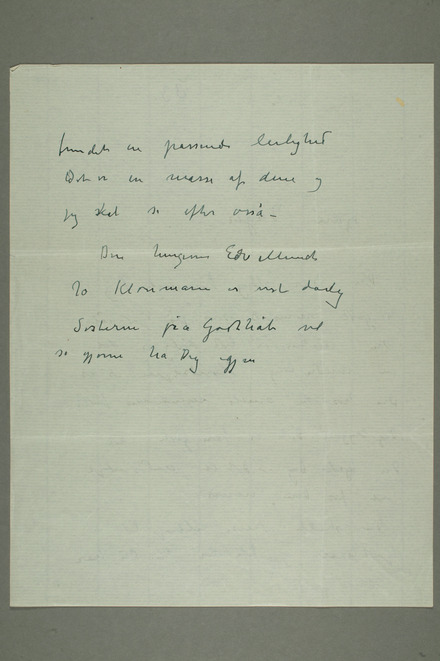 fundet en passende leilighed
Det er en masse af dem og
jeg skal se efter også –
Din hengivne Edv Munch
To Klonmann er vist darlig
Søsterne på Godthåb vil
så gjerne ha Dig igjen